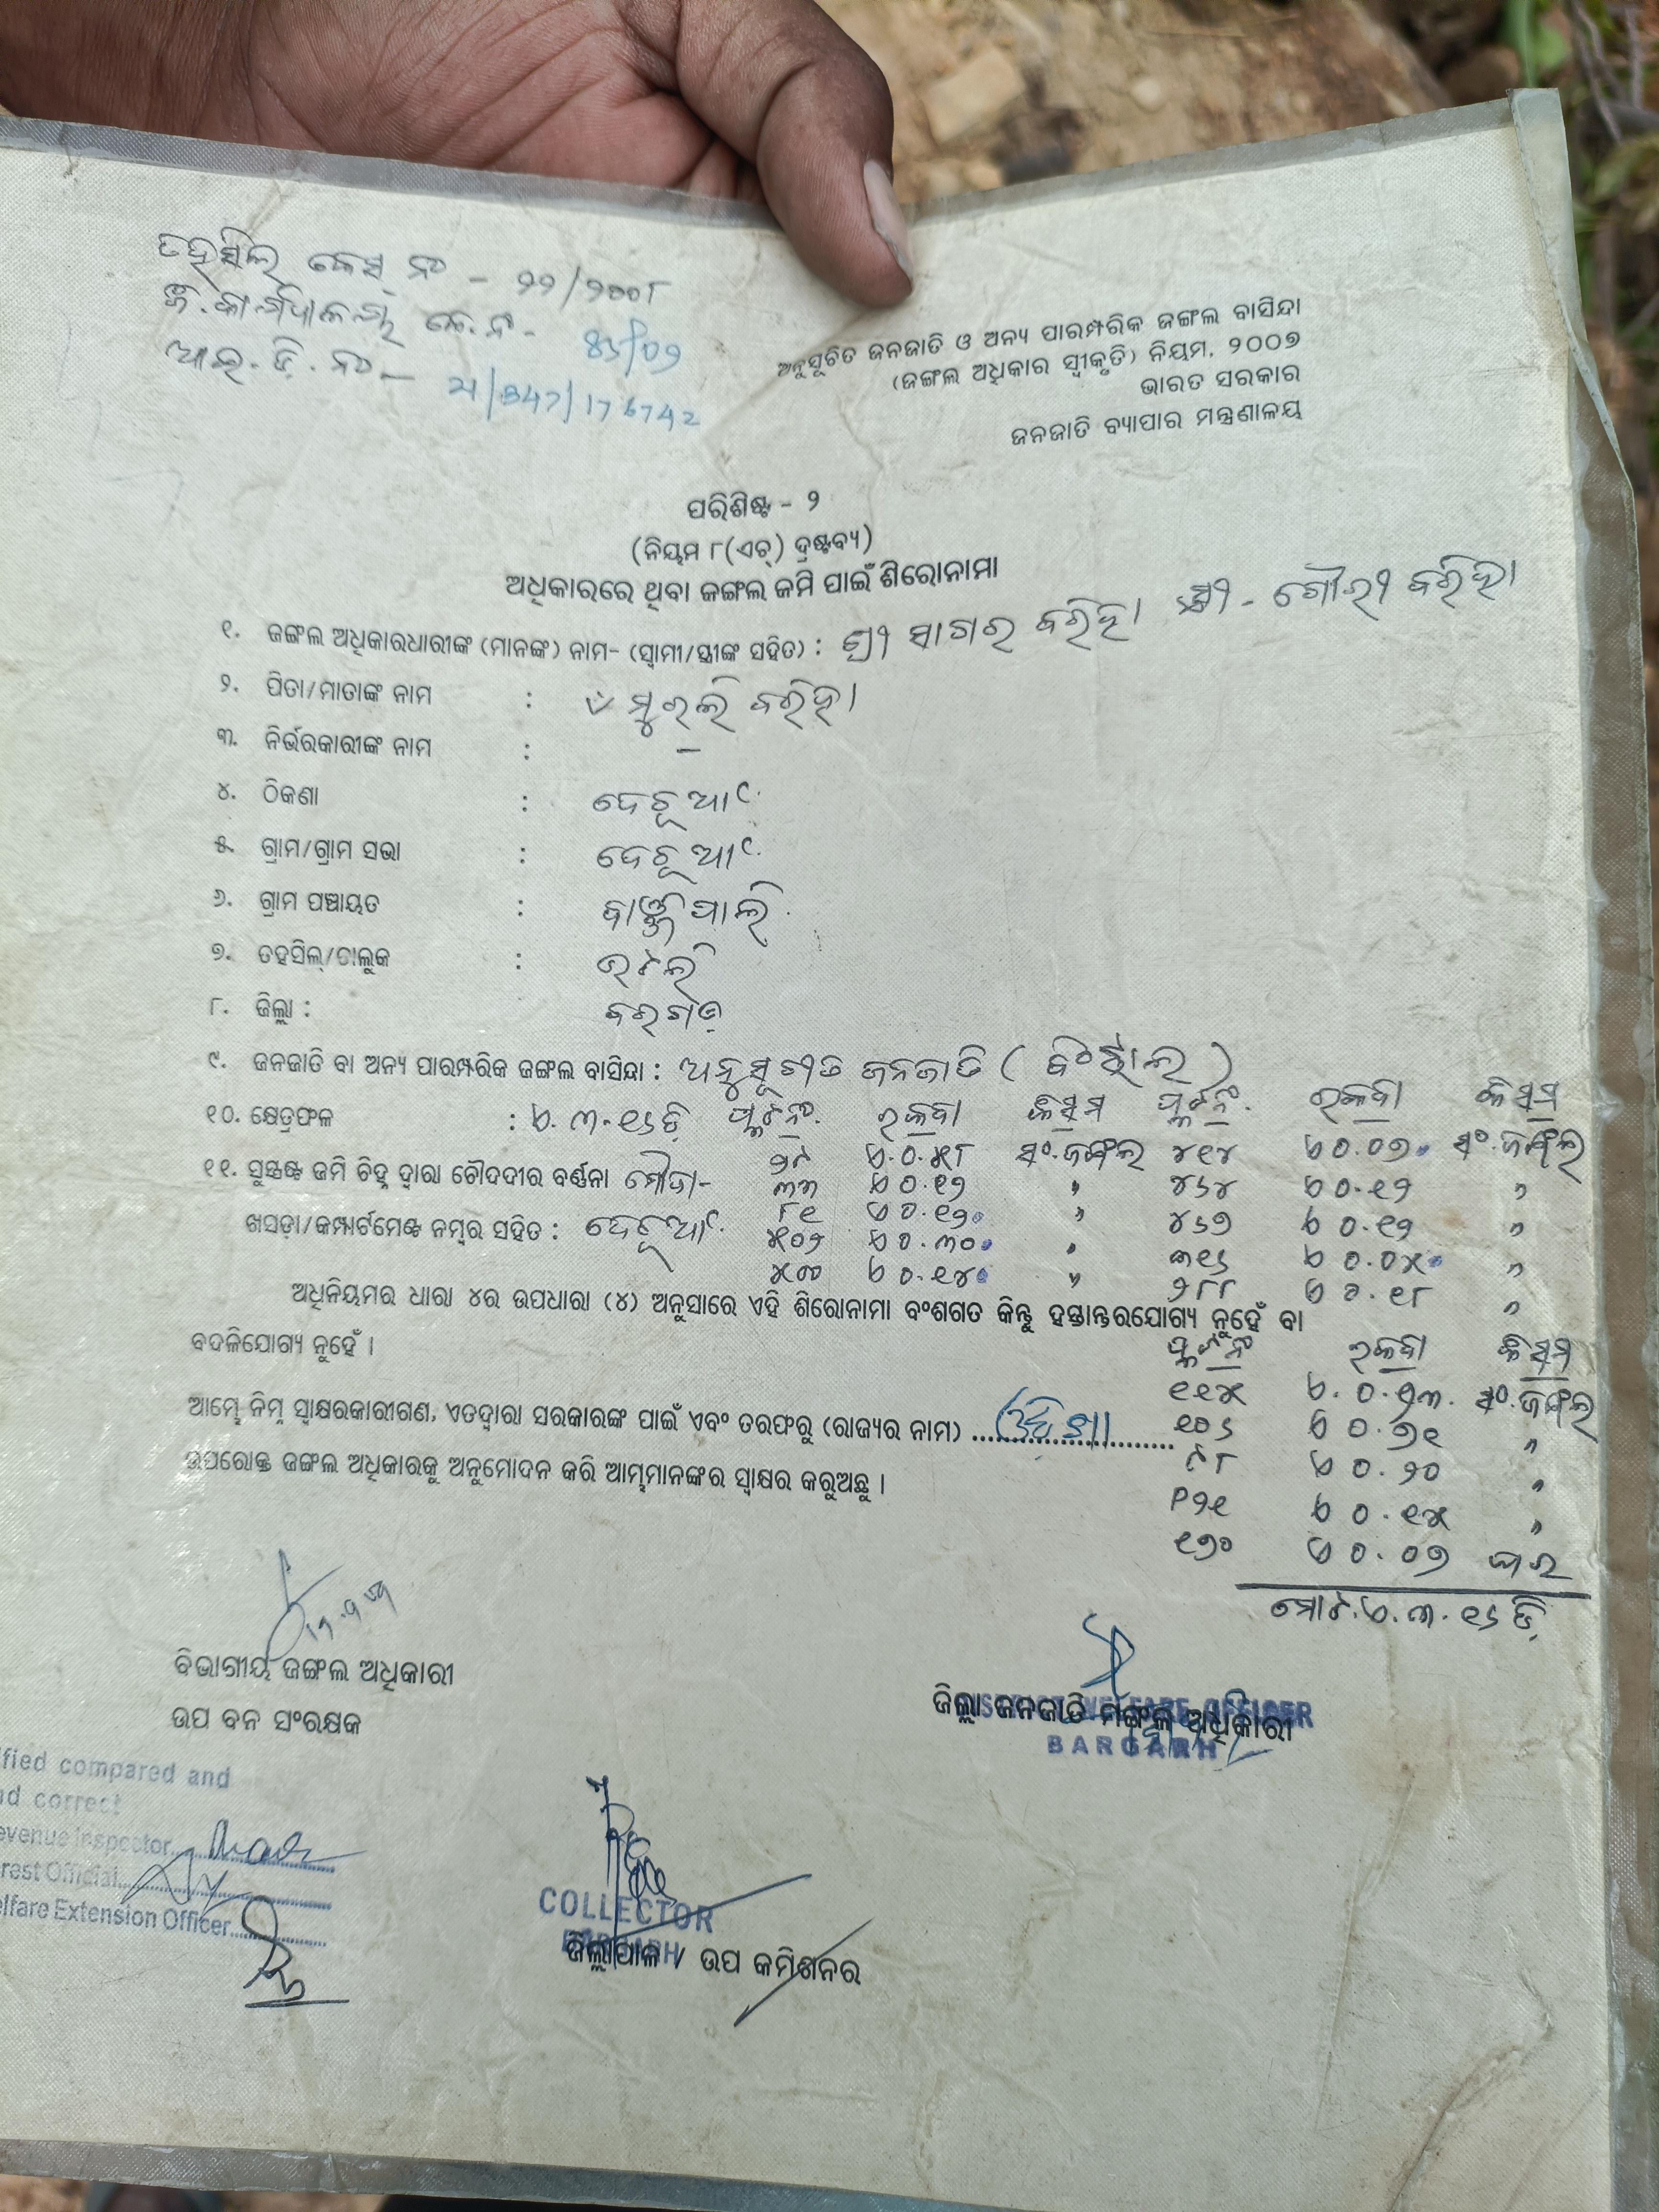 ତହସିଲ କେସ୍ ନଂ - ୨୨/୨୦୦୮
ଜି.କାର୍ଯ୍ୟାଳୟ କେ.ନଂ -
ଆଇ.ଡି.ନଂ - 21/347/176742
ଅନୁସୂଚିତ ଜନଜାତି ଓ ଅନ୍ୟ ପାରମ୍ପରିକ ଜଙ୍ଗଲ ବାସିନ୍ଦା
(ଜଙ୍ଗଲ ଅଧିକାର ସ୍ୱୀକୃତି) ନିୟମ, ୨୦୦୭
ଭାରତ ସରକାର
ଜନଜାତି ବ୍ୟାପାର ମନ୍ତ୍ରଣାଳୟ
ପରିଶିଷ୍ଟ - ୨
(ନିୟମ ୮(ଏଚ୍) ଦ୍ରଷ୍ଟବ୍ୟ)
ଅଧିକାରରେ ଥିବା ଜଙ୍ଗଲ ଜମି ପାଇଁ ଶିରୋନାମା
୧. ଜଙ୍ଗଲ ଅଧିକାରଧାରୀଙ୍କ (ମାନଙ୍କ) ନାମ- (ସ୍ୱାମୀ/ସ୍ତ୍ରୀଙ୍କ ସହିତ) : ଶ୍ରୀ ସାଗର ବରିହା ସ୍ତ୍ରୀ - ଗୌରୀ ବରିହା
୨. ପିତା/ମାତାଙ୍କ ନାମ : ମୁରଲି ବରିହା
୩. ନିର୍ଭରକାରୀଙ୍କ ନାମ : —
୪. ଠିକଣା : ଦେଚୂଆଁ
୫. ଗ୍ରାମ/ଗ୍ରାମ ସଭା : ଦେଚୂଆଁ
୬. ଗ୍ରାମ ପଞ୍ଚାୟତ : ବାଞ୍ଜିପାଲି
୭. ତହସିଲ୍/ତାଲୁକ : ଭଟଲି
୮. ଜିଲ୍ଲା : ବରଗଡ଼
୯. ଜନଜାତି ବା ଅନ୍ୟ ପାରମ୍ପରିକ ଜଙ୍ଗଲ ବାସିନ୍ଦା : ଅନୁସୂଚୀତ ଜନଜାତି (ବିଂଝାଲ)
୧୦. କ୍ଷେତ୍ରଫଳ : ଏ.୩.୧୬ଡି ପ୍ଲଟ ନଂ. ରକବା କିସମ ପ୍ଲଟ ନଂ. ରକବା କିସମ
୭୯ ଏ.୦.୪୮ ସଂ.ଜଙ୍ଗଲ ୪୧୪ ଏ ୦.୦୭ ସଂ.ଜଙ୍ଗଲ
୧୧. ସୁସ୍ପଷ୍ଟ ଜମି ଚିହ୍ନ ଦ୍ୱାରା ଚୌଦଦୀର ବର୍ଣ୍ଣନା ମୌଜା-
୩୩ ଏ ୦.୧୭ " ୪୬୪ ଏ ୦.୧୨ "
ଖସଡ଼ା/କମ୍ପାର୍ଟମେଣ୍ଟ ନମ୍ବର ସହିତ : ଦେଚୂଆଁ
୮୧ ଏ ୦.୧୨ " ୪୬୭ ଏ ୦.୧୨ "
୫୦୨ ଏ ୦.୩୦ " ୩୧୬ ଏ ୦.୦୪ "
ଏ ୦.୧୪ " ୨୮୮ ଏ ୦.୧୮ "
ଅଧିନିୟମର ଧାରା ୪ର ଉପଧାରା (୪) ଅନୁସାରେ ଏହି ଶିରୋନାମା ବଂଶଗତ କିନ୍ତୁ ହସ୍ତାନ୍ତରଯୋଗ୍ୟ ନୁହେଁ ବା
ବଦଳିଯୋଗ୍ୟ ନୁହେଁ ।
ପ୍ଲଟ ନଂ ରକବା କିସମ
୧୧୪ ଏ.୦.୧୩. ସଂ.ଜଙ୍ଗଲ
ଆମ୍ଭେ ନିମ୍ନ ସ୍ୱାକ୍ଷରକାରୀଗଣ, ଏତଦ୍ୱାରା ସରକାରଙ୍କ ପାଇଁ ଏବଂ ତରଫରୁ (ରାଜ୍ୟର ନାମ) ଓଡ଼ିଶା
୧୦୬ ଏ ୦.୭୧ "
ଉପରୋକ୍ତ ଜଙ୍ଗଲ ଅଧିକାରକୁ ଅନୁମୋଦନ କରି ଆମ୍ଭମାନଙ୍କର ସ୍ୱାକ୍ଷର କରୁଅଛୁ ।
୯୮ ଏ ୦.୨୦ "
ଏ ୦.୧୪ "
୧୭୦ ଏ ୦.୦୭ ଘର
ମୋଟ.ଏ.୩.୧୬ ଡି
ବିଭାଗୀୟ ଜଙ୍ଗଲ ଅଧିକାରୀ
ଉପ ବନ ସଂରକ୍ଷକ
ଜିଲ୍ଲା ଜନଜାତି ମଙ୍ଗଳ ଅଧିକାରୀ
DISTRICT WELFARE OFFICER
BARGARH
fied compared and
nd correct
evenue Inspector
rest Official
elfare Extension Officer
COLLECTOR
BARGARH
ଜିଲ୍ଲାପାଳ / ଉପ କମିଶନର